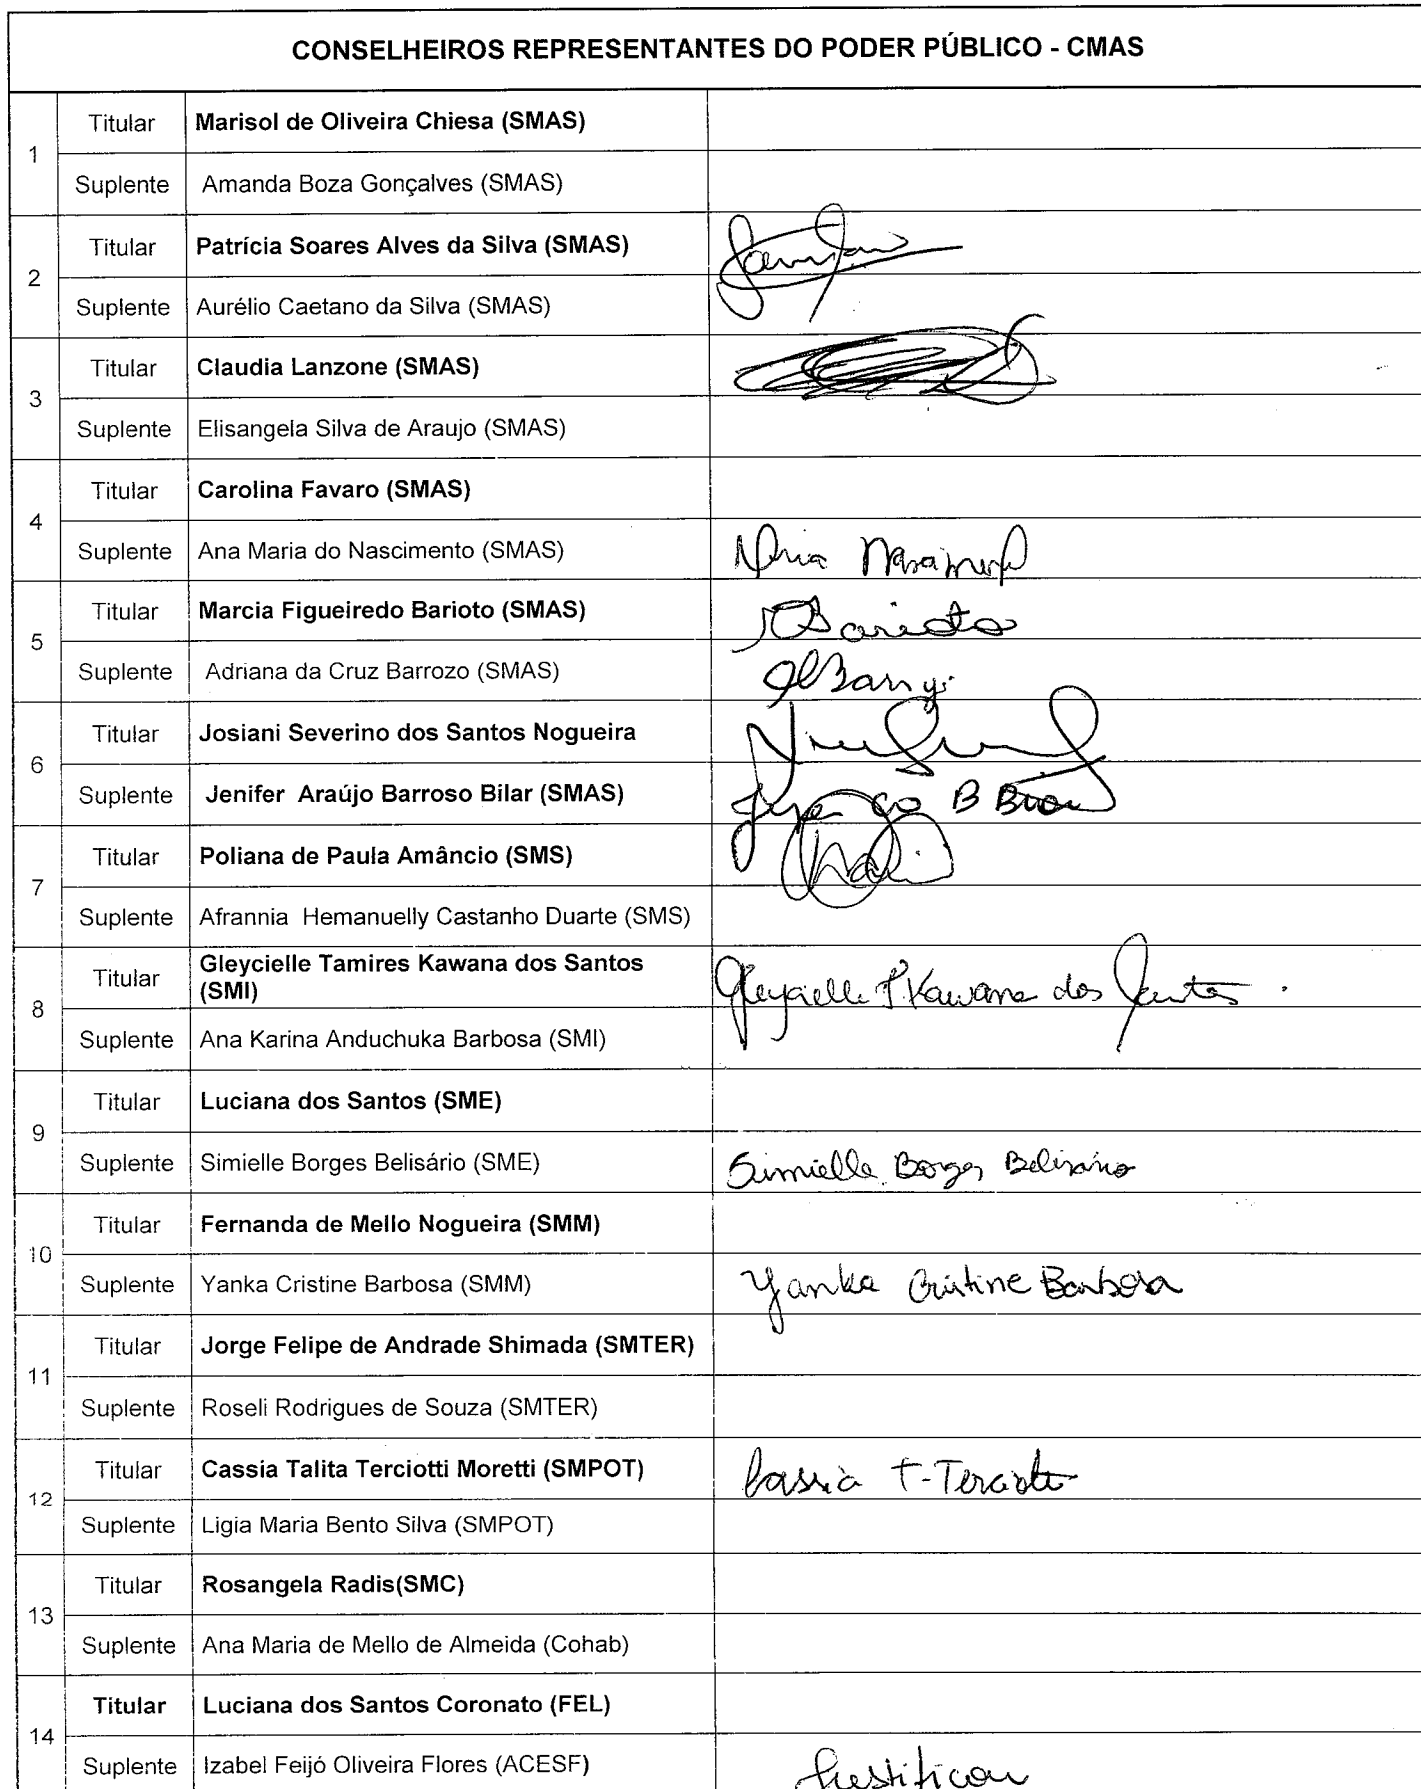 CONSELHEIROS REPRESENTANTES DO PODER PÚBLICO - CMAS
1
Titular Marisol de Oliveira Chiesa (SMAS)
Suplente Amanda Boza Gonçalves (SMAS)
2
Titular Patrícia Soares Alves da Silva (SMAS)
Suplente Aurélio Caetano da Silva (SMAS)
3
Titular Claudia Lanzone (SMAS)
Suplente Elisangela Silva de Araujo (SMAS)
4
Titular Carolina Favaro (SMAS)
Suplente Ana Maria do Nascimento (SMAS)
5
Titular Marcia Figueiredo Barioto (SMAS) Barioto
Suplente Adriana da Cruz Barrozo (SMAS)
6
Titular Josiani Severino dos Santos Nogueira
Suplente Jenifer Araújo Barroso Bilar (SMAS)
7
Titular Poliana de Paula Amâncio (SMS)
Suplente Afrannia Hemanuelly Castanho Duarte (SMS)
8
Titular Gleycielle Tamires Kawana dos Santos
(SMI) Gleycielle T Kawana dos Santos
Suplente Ana Karina Anduchuka Barbosa (SMI)
9
Titular Luciana dos Santos (SME)
Suplente Simielle Borges Belisário (SME) Simielle Borges Belisário
10
Titular Fernanda de Mello Nogueira (SMM)
Suplente Yanka Cristine Barbosa (SMM) Yanka Cristine Barbosa
11
Titular Jorge Felipe de Andrade Shimada (SMTER)
Suplente Roseli Rodrigues de Souza (SMTER)
12
Titular Cassia Talita Terciotti Moretti (SMPOT) Cassia T. Terciotti
Suplente Ligia Maria Bento Silva (SMPOT)
13
Titular Rosangela Radis(SMC)
Suplente Ana Maria de Mello de Almeida (Cohab)
14
Titular Luciana dos Santos Coronato (FEL)
Suplente Izabel Feijó Oliveira Flores (ACESF) Justificou